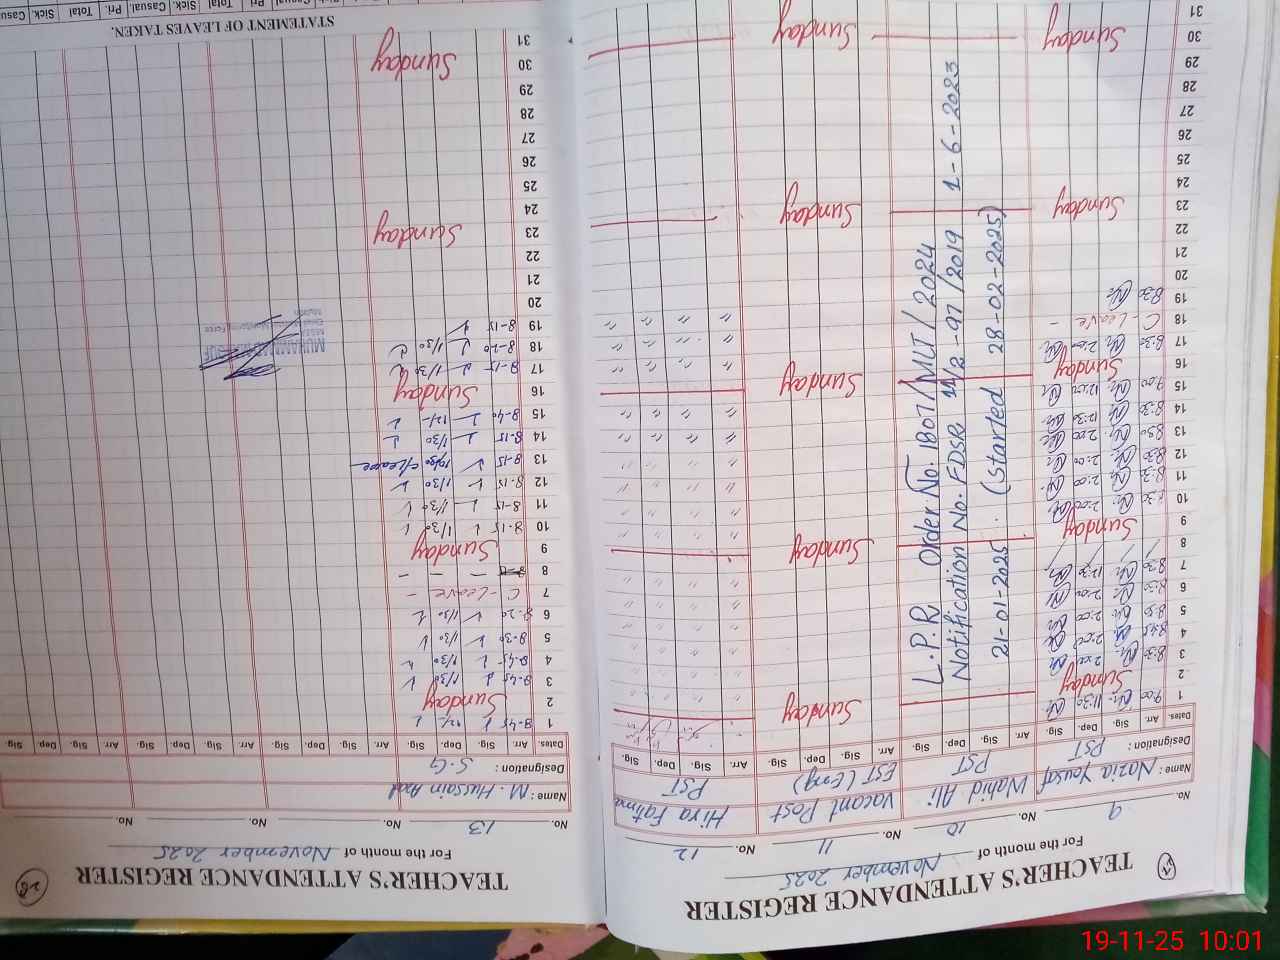 TEACHER'S ATTENDANCE REGISTER
For the month of November 2025
No. 9 No. 10 No. 11 No. 12
Name: Nazia Yousaf Wahid Ali Vacant Post Hira Fatima
Designation: PST PST EST (Eng) PST
Dates. Arr. Sig. Dep. Sig. Arr. Sig. Dep. Sig. Arr. Sig. Dep. Sig. Arr. Sig. Dep. Sig.
1 9:00 11:30
2 Sunday Sunday
3 8:30 2:00
4 8:45 2:00
5 2:00
6 8:30 2:00
7 8:30 12:30
8
9 Sunday Sunday
10 8:30 2:00
11 8:30 2:00
12 8:30 2:00
13 8:50 2:00
14 8:30 12:30
15 9:00 12:00
16 Sunday Sunday
17 8:30 2:00
18 C-Leave -
19 8:30
20
21
22
23 Sunday Sunday
24
25
26
27
28
29
30 Sunday Sunday
31
L.P.R Order No. 1807/MLT/2024
Notification No. FDSR 11/2-97/2019 1-6-2023
21-01-2025. (Started 28-02-2025)
TEACHER'S ATTENDANCE REGISTER
28
For the month of November 2025
No. 13 No. No. No.
Name: M. Hussain
Designation: S.G
Dates. Arr. Sig. Dep. Sig. Arr. Sig. Dep. Sig. Arr. Sig. Dep. Sig. Arr. Sig. Dep. Sig.
1 8-45 12/-
2 Sunday
3 8-45 1/30
4 8-45 1/30
5 8-30 1/30
6 8-20 1/30
7 C-Leave -
8 - -
9 Sunday
10 8-15 1/30
11 8-15 1/30
12 8-15 1/30
13 8-15 10/30 c/Leave
14 8-15 1/30
15 8-40 12/-
16 Sunday
17 8-15 1/30
18 8-20 1/30
19 8-15
20
21
22
23 Sunday
24
25
26
27
28
29
30 Sunday
31
STATEMENT OF LEAVES TAKEN.
19-11-25 10:01